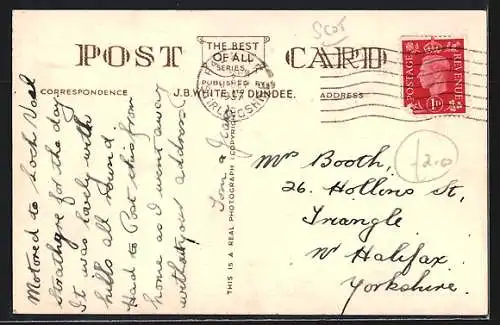 POST CARD
THE BEST
OF ALL
SERIES
PUBLISHED BY
J.B. WHITE, LTD DUNDEE.
CORRESPONDENCE
ADDRESS
THIS IS A REAL PHOTOGRAPH (COPYRIGHT)
Scot
POSTAGE
REVENUE
1D
£2.0
Motored to Loch Voal
Strathyre for the day
It was lovely with
hills all round
Had to Post this from
home as I went away
without your address
Tom &
Mrs Booth,
26. Hollins St,
Triangle
Nr Halifax
Yorkshire.